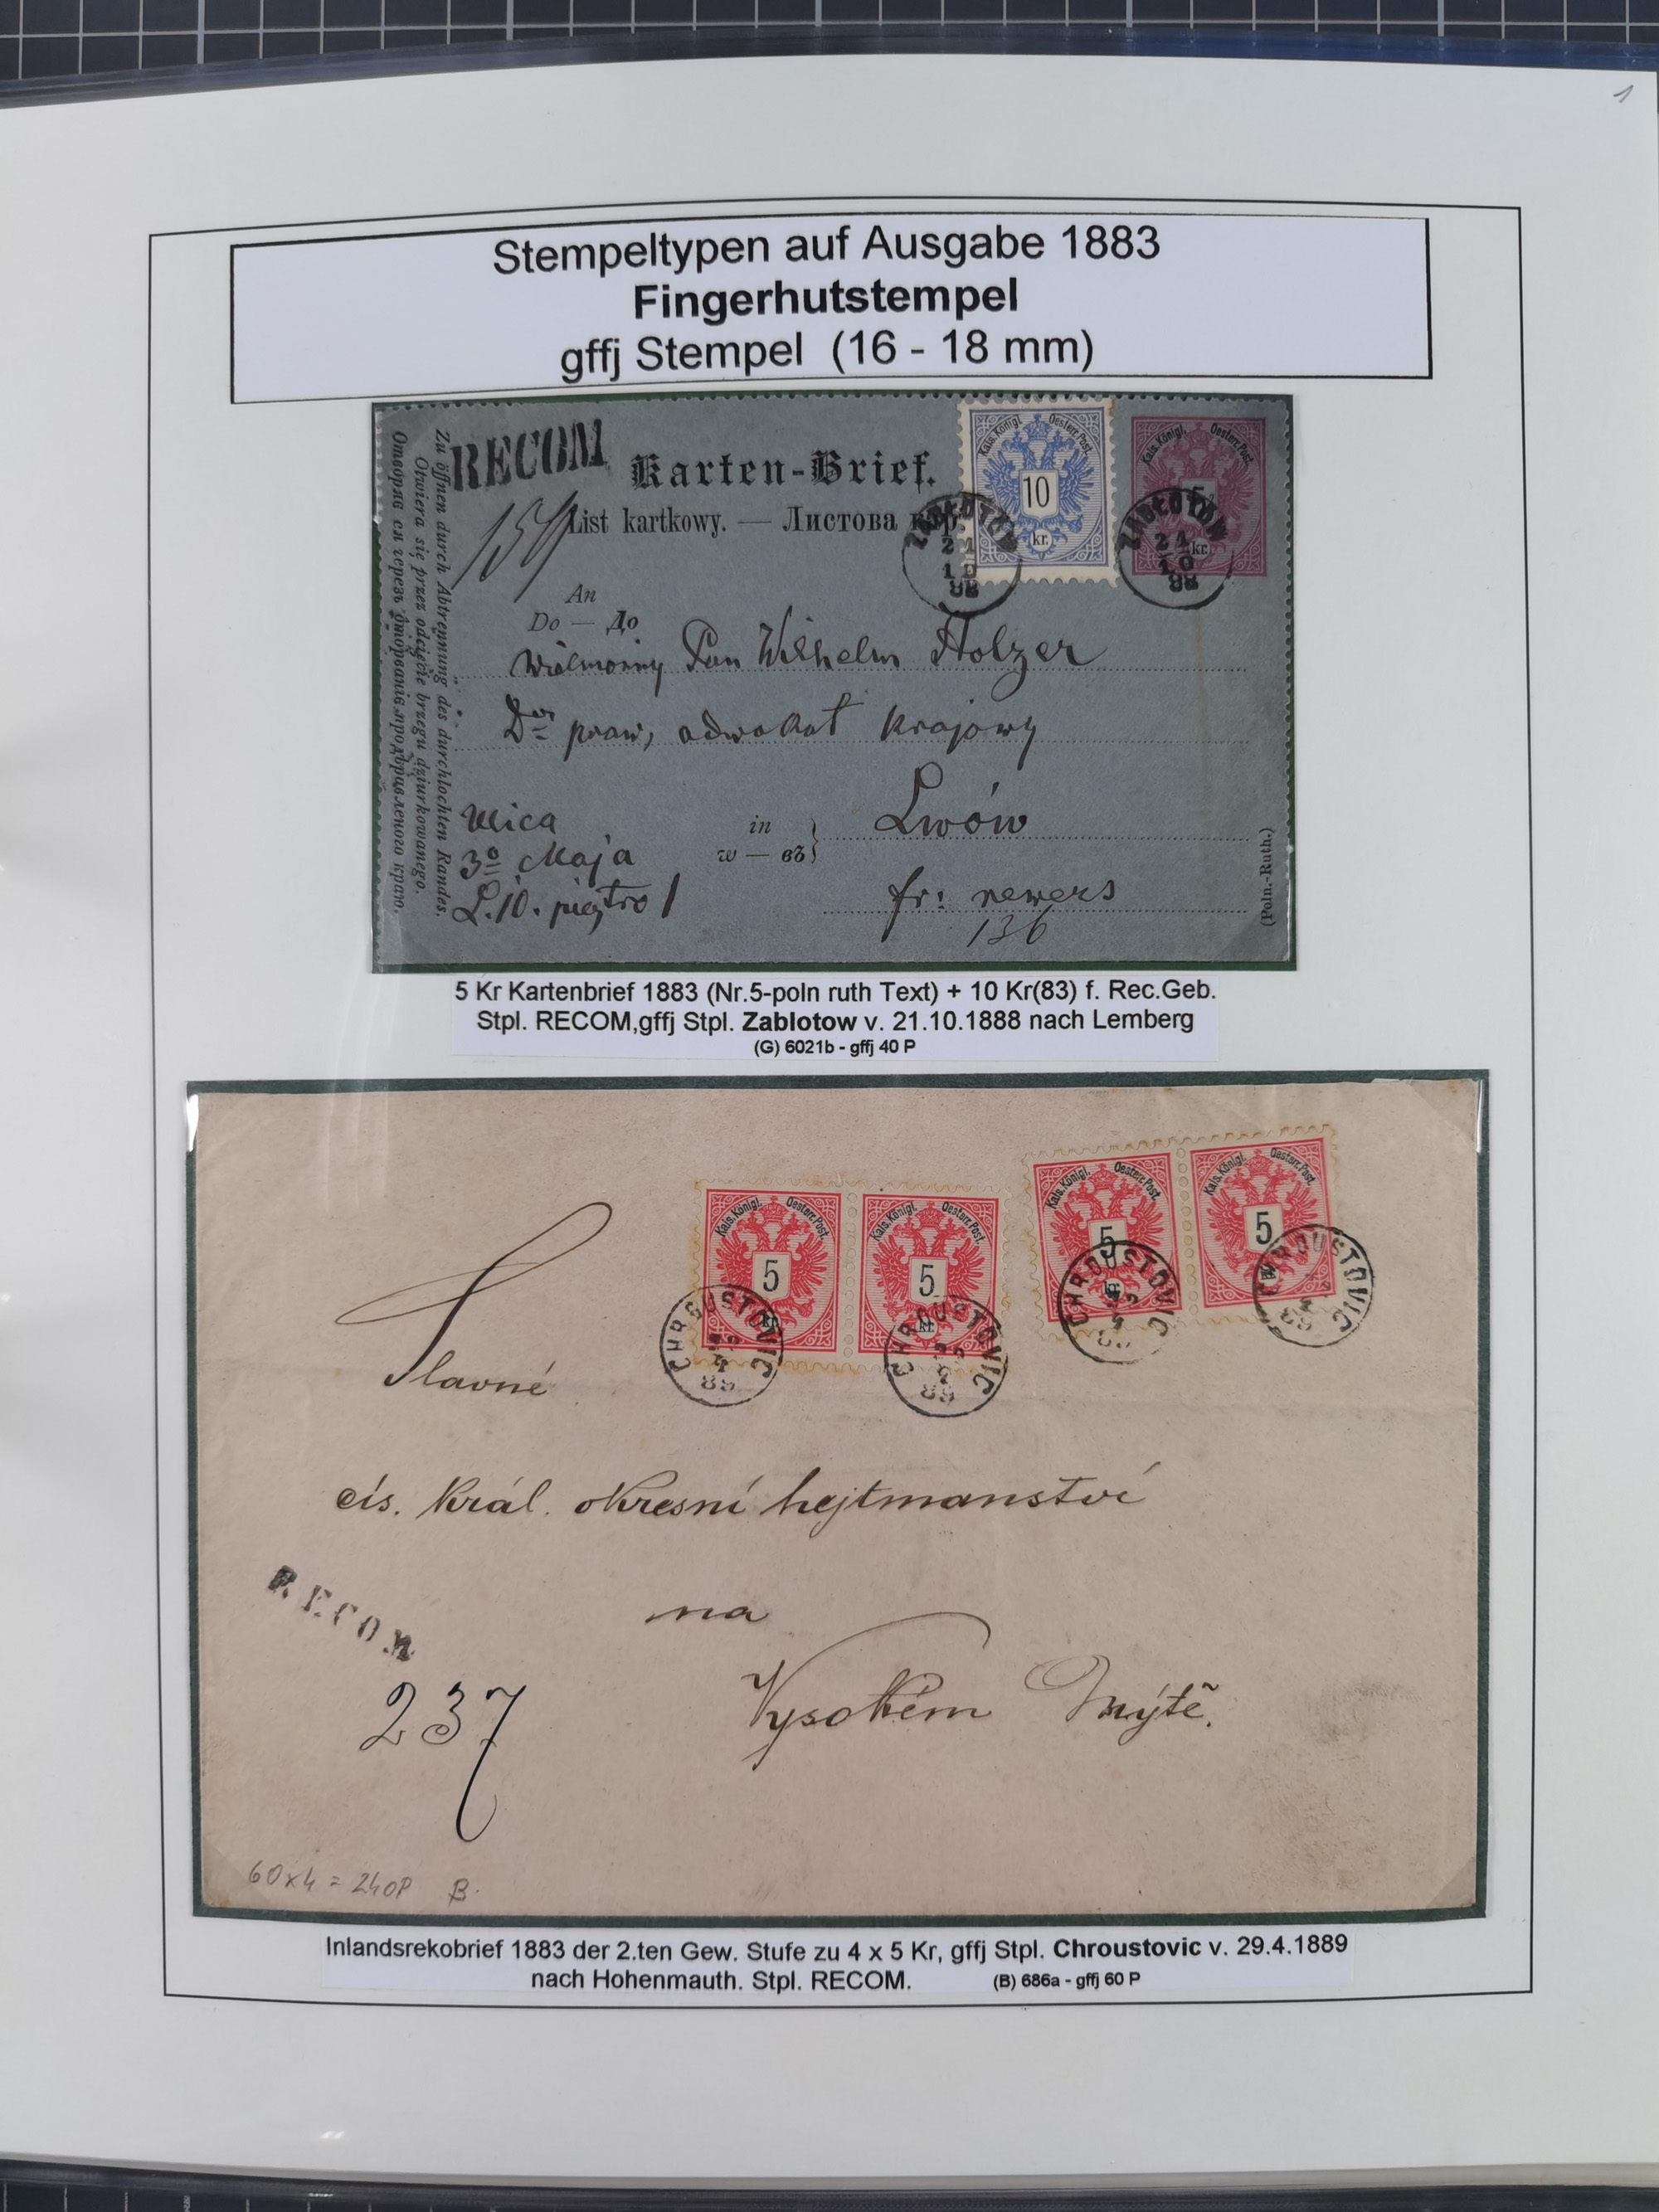 1
Stempeltypen auf Ausgabe 1883
Fingerhutstempel
gffj Stempel (16 - 18 mm)
RECOM
Karten-Brief.
List kartkowy. — Листова кор.
Zu öffnen durch Abtrennung des durchlochten Randes.
Otwiera się przez odcięcie brzegu dziurkowanego.
Kais. Königl. Oesterr. Post.
10
kr.
Kais. Königl. Oesterr. Post.
5
kr.
ZABŁOTÓW
21
10
88
ZABŁOTÓW
21
10
88
An
Do — До
Wielmożny Pan Wilhelm Holzer
Dor praw, adwokat krajowy
ulica
in
Lwów
3o Maja
w — въ
L. 10. piętro I
fr: rewers
136
(Poln.-Ruth.)
5 Kr Kartenbrief 1883 (Nr.5-poln ruth Text) + 10 Kr(83) f. Rec.Geb.
Stpl. RECOM,gffj Stpl. Zablotow v. 21.10.1888 nach Lemberg
(G) 6021b - gffj 40 P
Kais. Königl. Oesterr. Post.
5
kr.
Kais. Königl. Oesterr. Post.
5
kr.
Kais. Königl. Oesterr. Post.
5
kr.
Kais. Königl. Oesterr. Post.
5
CHROUSTOVIC
89
CHROUSTOVIC
89
CHROUSTOVIC
CHROUSTOVIC
89
Slavné
cís. král. okresní hejtmanství
RECOM
na
237
Vysokém Mýtě.
60x4 = 240P B.
Inlandsrekobrief 1883 der 2.ten Gew. Stufe zu 4 x 5 Kr, gffj Stpl. Chroustovic v. 29.4.1889
nach Hohenmauth. Stpl. RECOM. (B) 686a - gffj 60 P